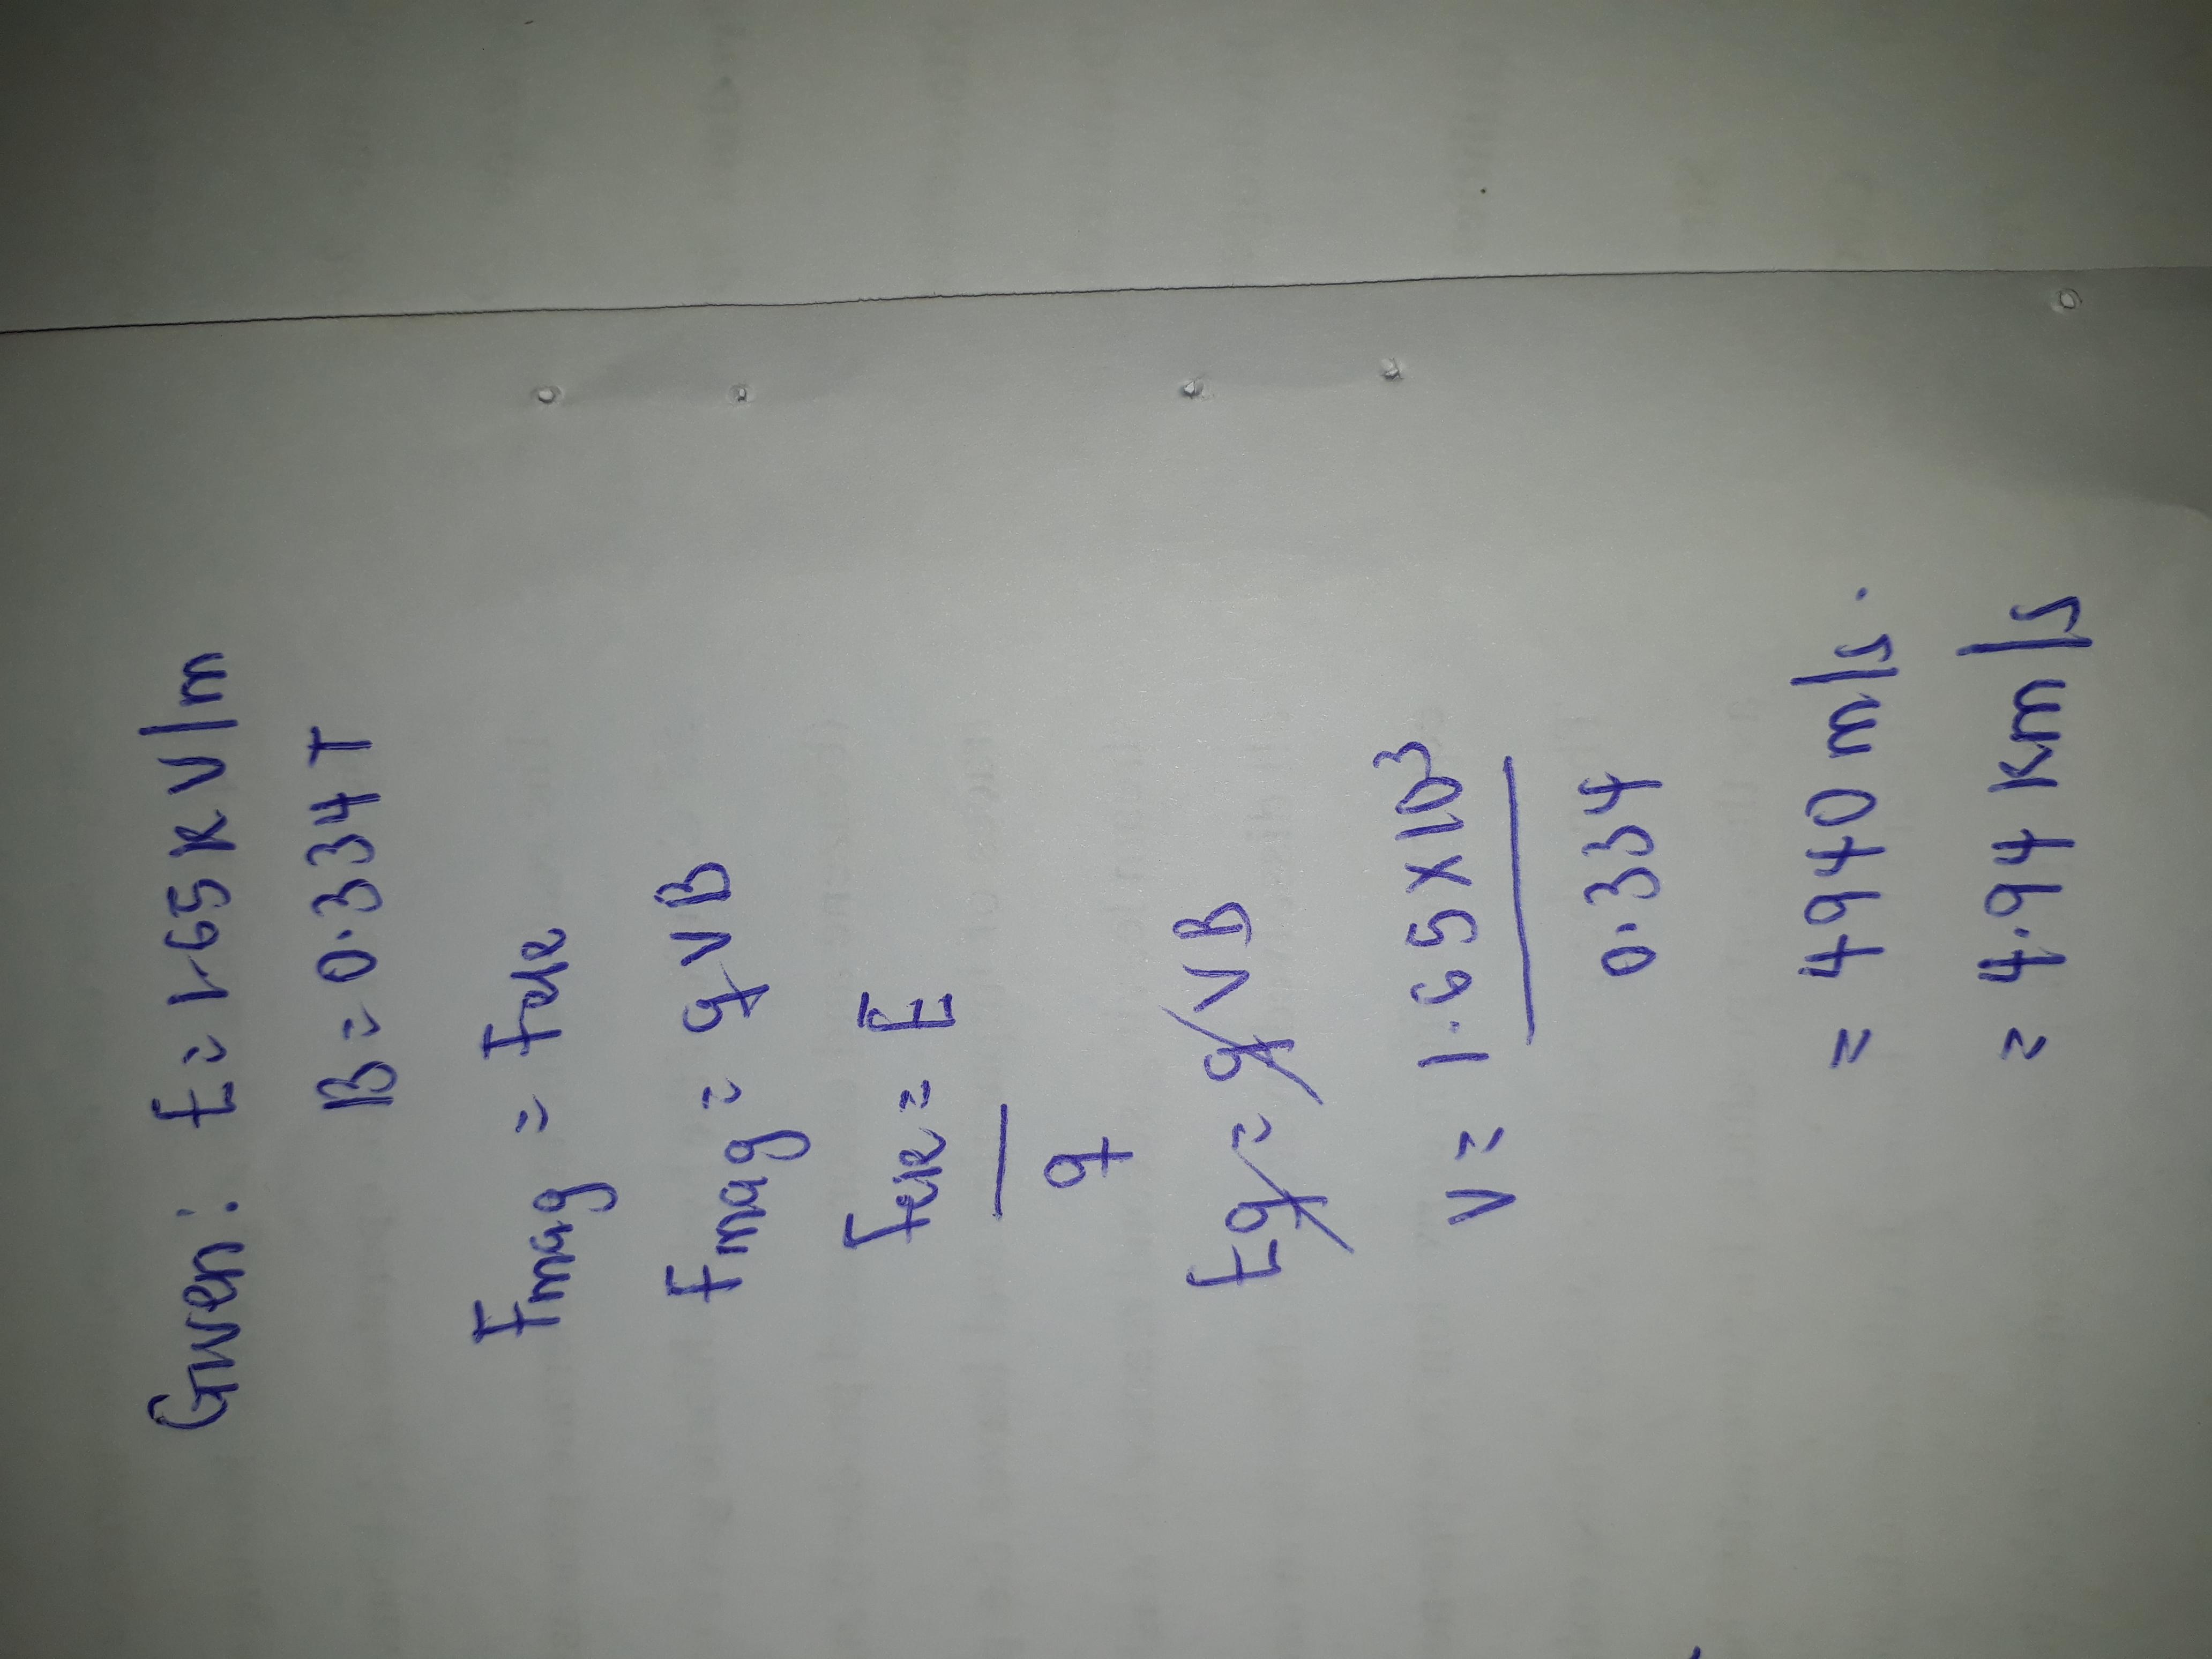 Given: E = 1.65 KV/m
B = 0.334 T
Fmag = Fele
Fmag = qVB
Fele = E
q
Eq = qVB
V = 1.65 X 10³
0.334
= 4940 m/s.
= 4.94 Km/s